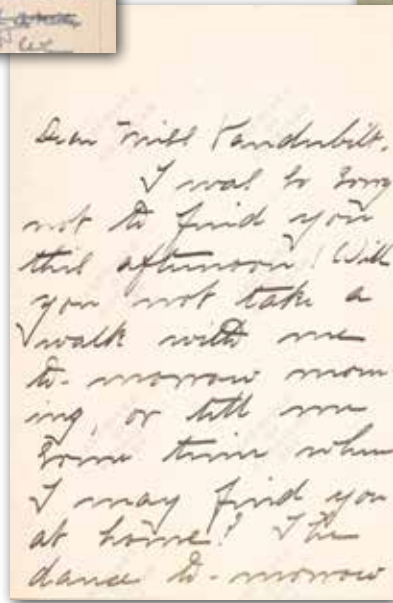 Dear Miss Vanderbilt,
I was so sorry
not to find you
this afternoon! Will
you not take a
walk with me
to-morrow morn-
ing, or tell me
some time when
I may find you
at home? The
dance to-morrow